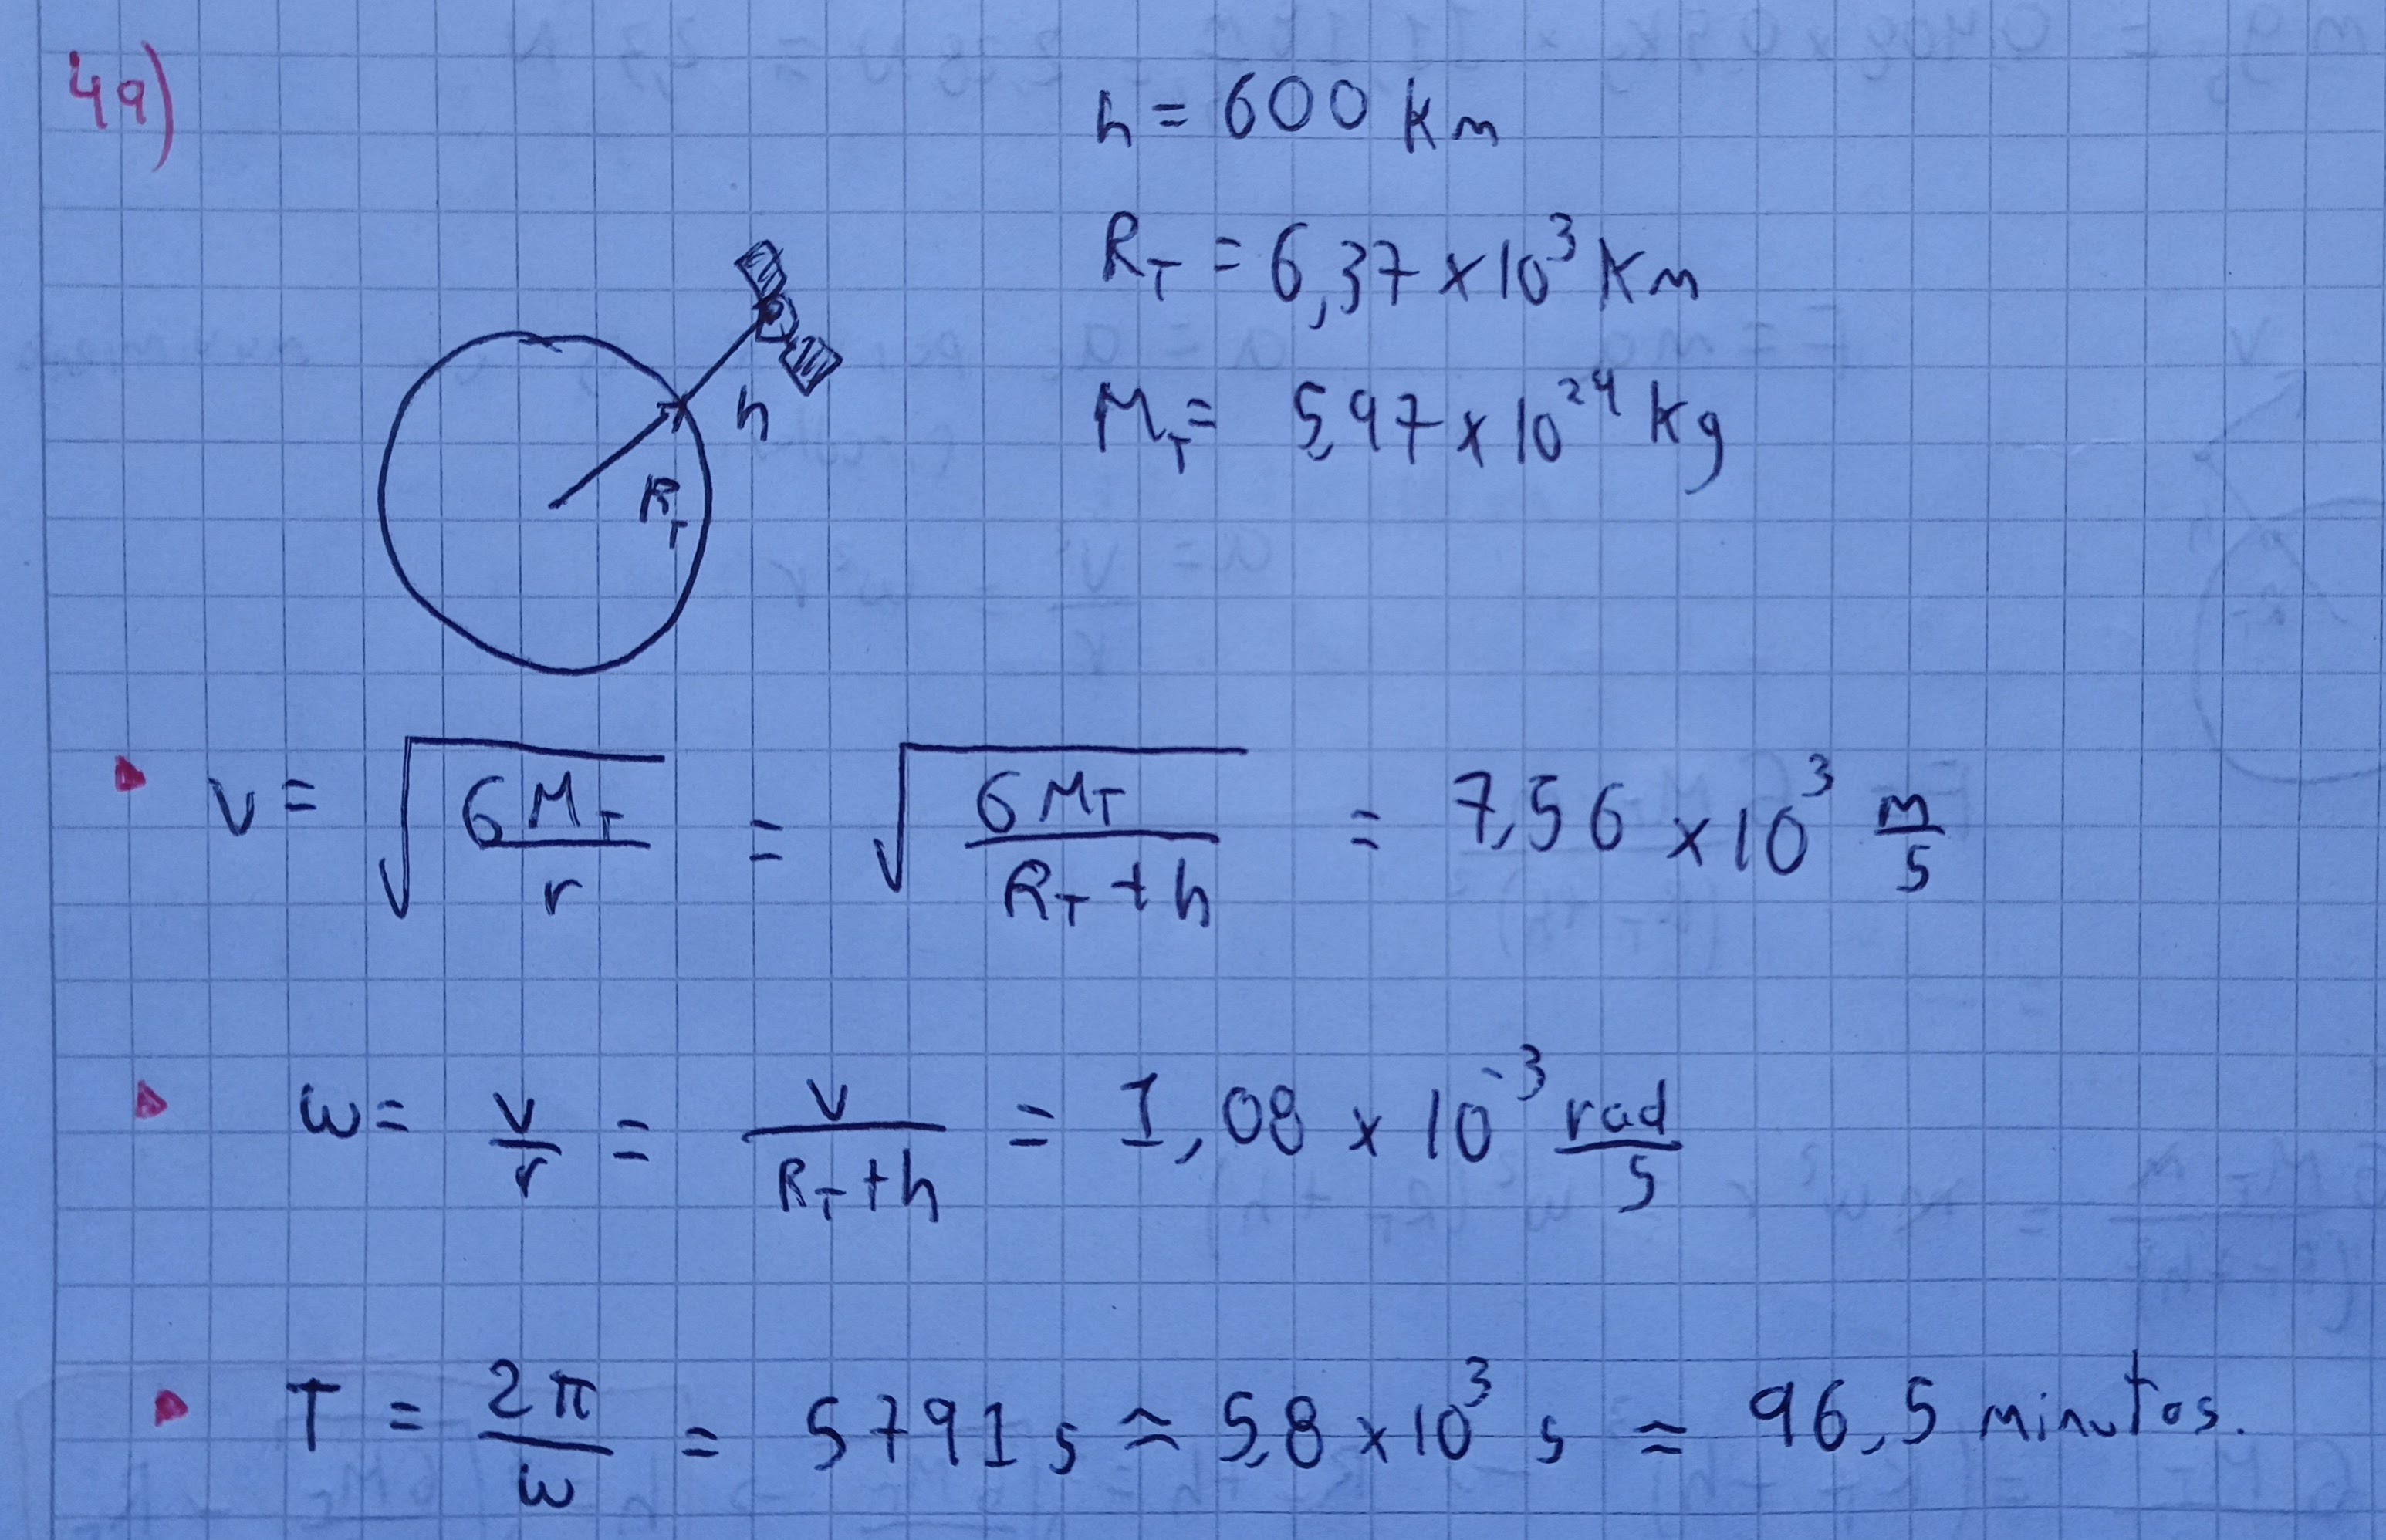 49)
h = 600 km
R_T = 6,37 × 10³ Km
M_T = 5,97 × 10²⁴ Kg
h
R_T
v = √(G M_T / r) = √(G M_T / (R_T + h)) = 7,56 × 10³ m/s
ω = v/r = v/(R_T + h) = 1,08 × 10⁻³ rad/s
T = 2π/ω = 5791 s ≈ 5,8 × 10³ s ≈ 96,5 minutos.